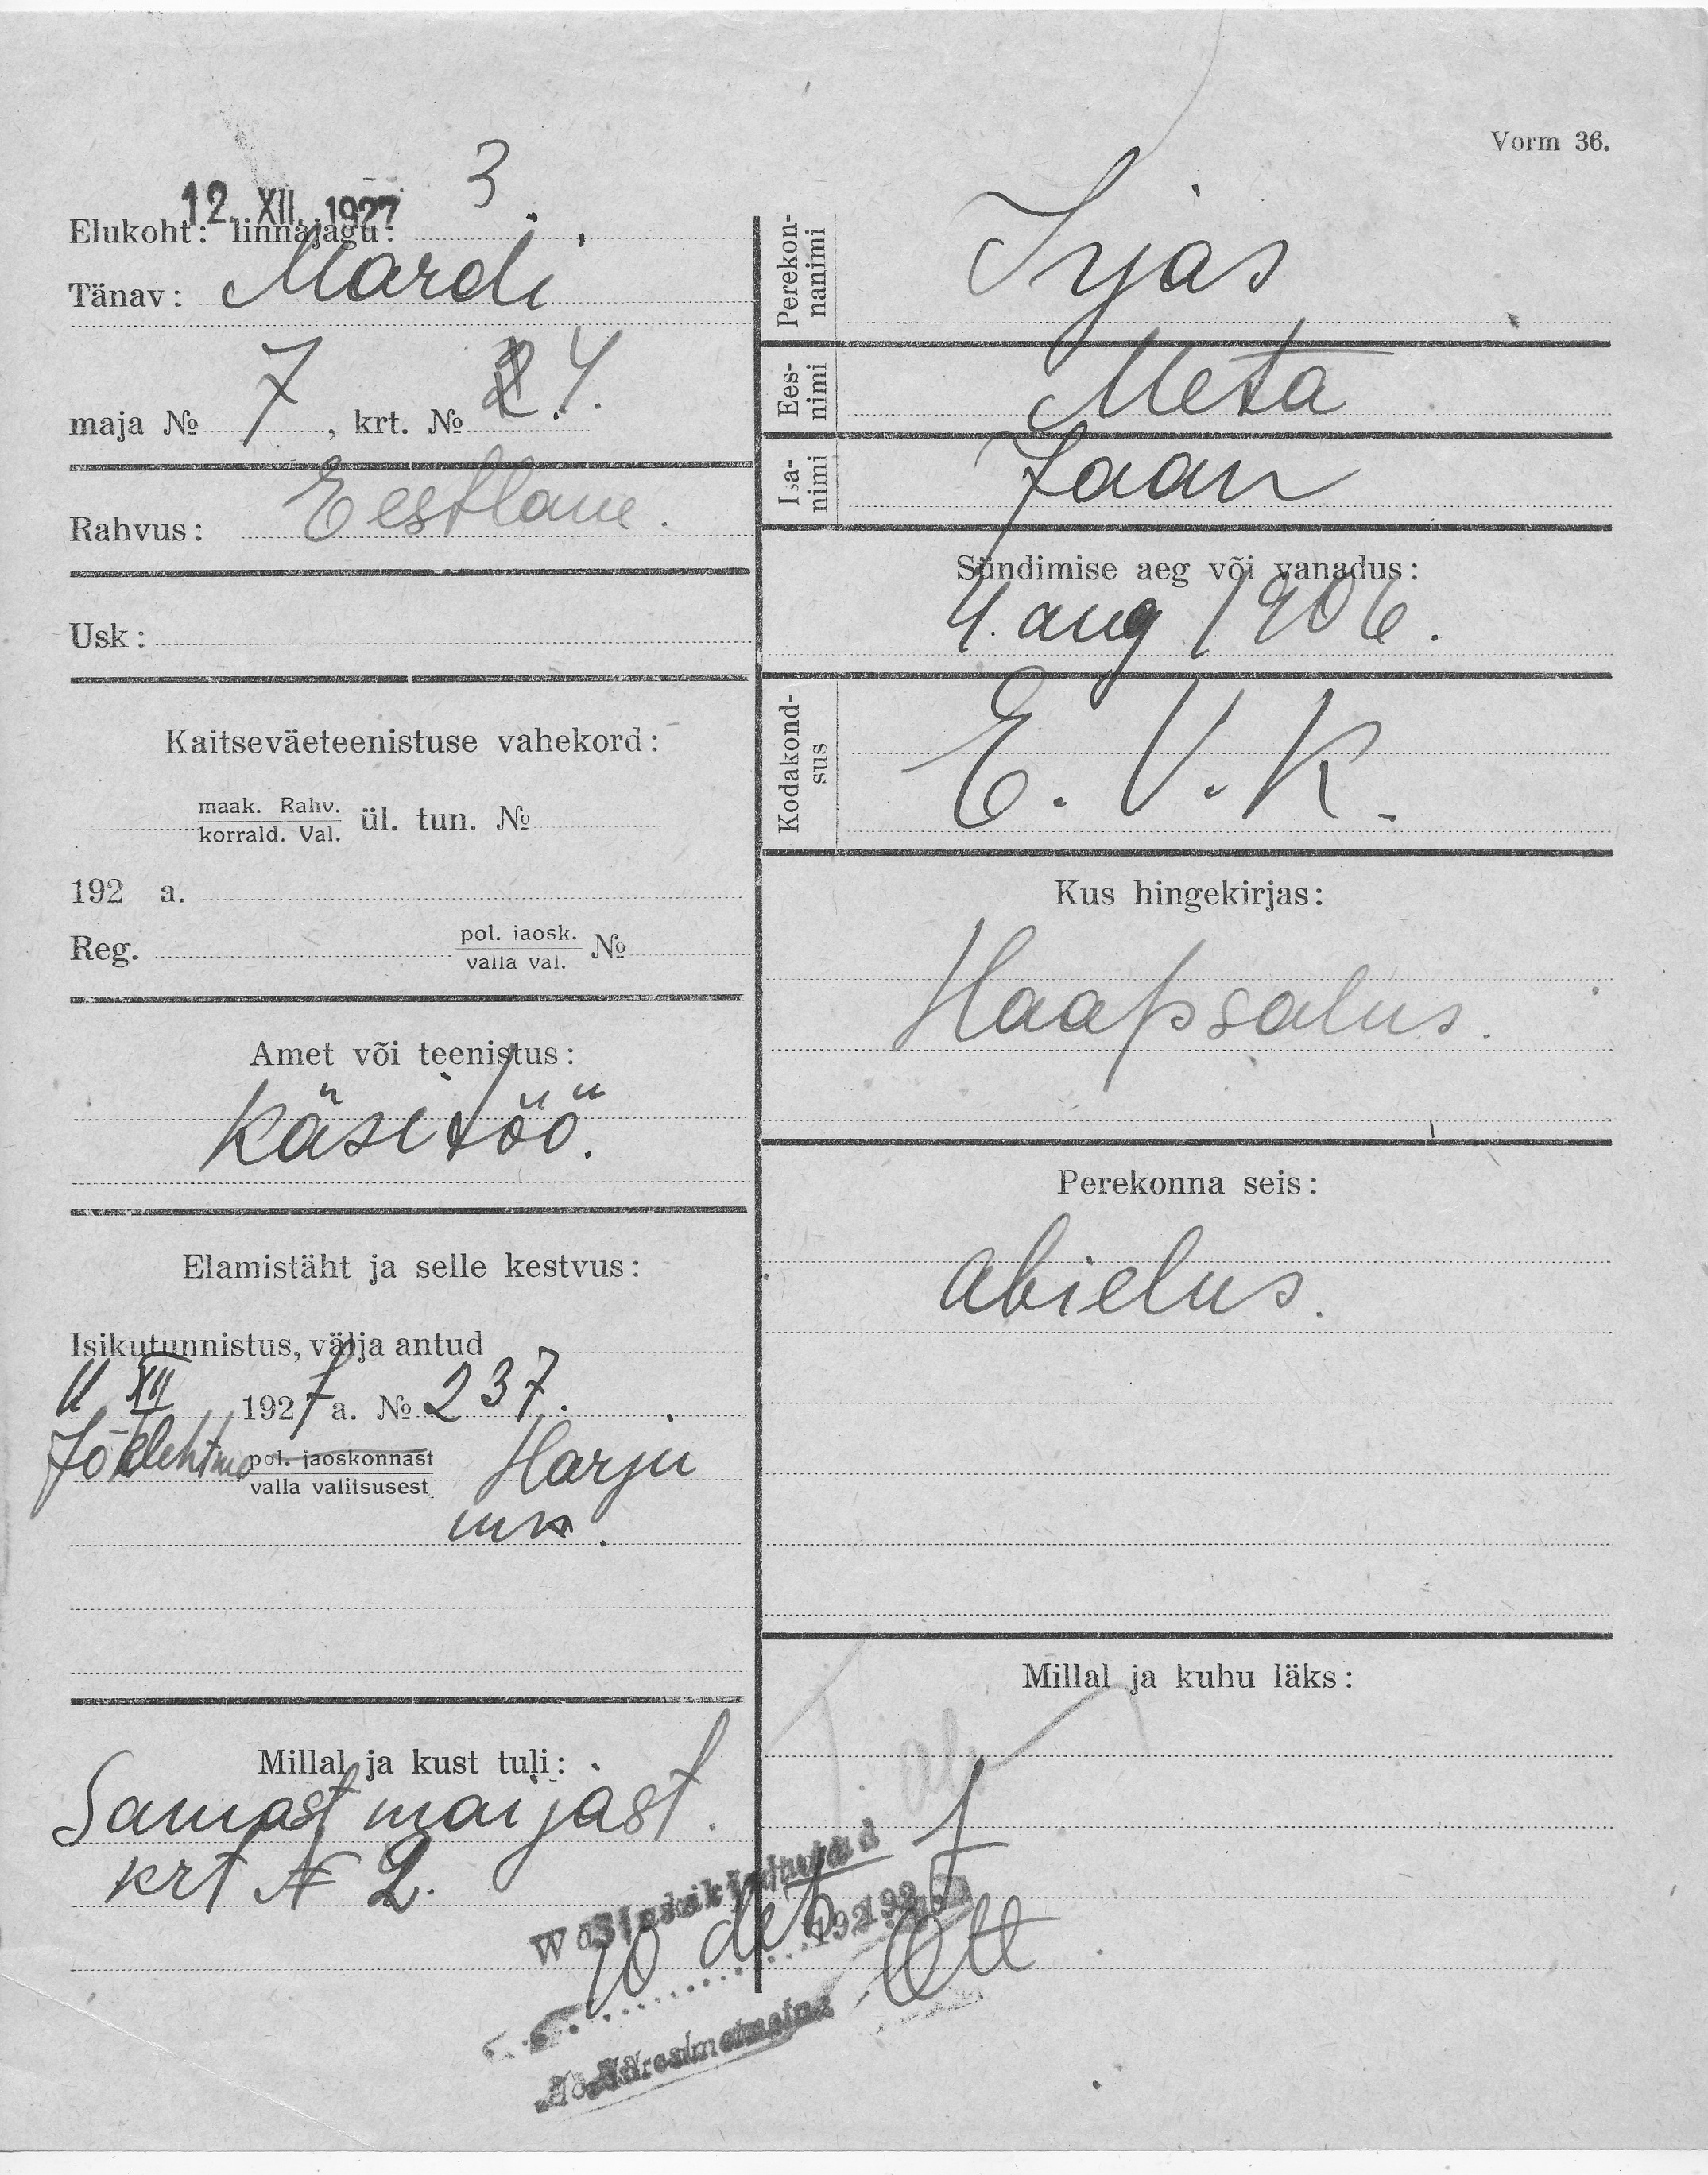 Vorm 36.
12. XII. 1927
3
Elukoht: linnajagu:
Tänav: Mardi
maja № 7, krt. № 4.
Rahvus: Eestlane.
Usk:
Kaitseväeteenistuse vahekord:
maak. Rahv.
korrald. Val. ül. tun. №
192 a.
Reg. pol. jaosk.
valla val. №
Amet või teenistus:
Käsitöö.
Elamistäht ja selle kestvus:
Isikutunnistus, välja antud
11 XII 1927 a. № 237.
Jõelehtme pol. jaoskonnast Harju
valla valitsusest
Millal ja kust tuli:
Samast maijast.
krt № 2.
Perekon-
nanimi
Irjas
Ees-
nimi Meta
Isa-
nimi Jaan
Sündimise aeg või vanadus:
4. aug 1906.
Kodakond-
sus E. V. K.
Kus hingekirjas:
Haapsalus.
Perekonna seis:
abielus.
Millal ja kuhu läks:
10 dets 192
Ott